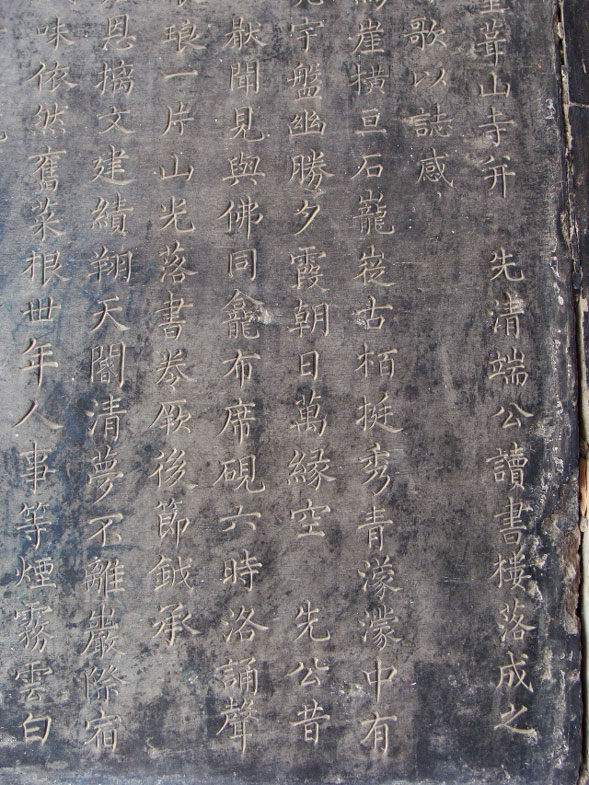 葺山寺并　先清端公讀書樓落成之
歌以誌感
崖橫亘石巃嵸古栢挺秀青濛濛中有
宇盤幽勝夕霞朝日萬緣空　先公昔
猒聞見與佛同龕布席硯六時洛誦聲
琅一片山光落書卷厥後節鉞承
恩摛文建績翔天閽清夢不離巖際宿
味依然舊菜根世年人事等煙霧雲白